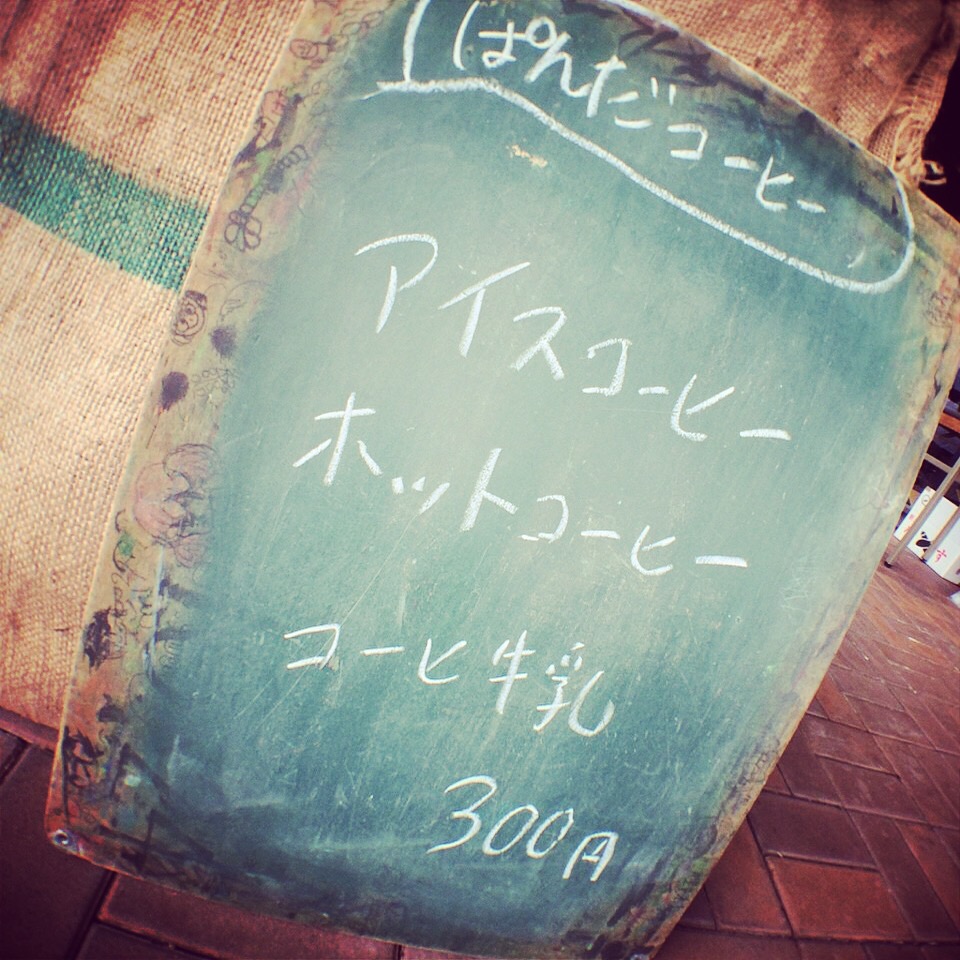 ぱんだコーヒー
アイスコーヒー
ホットコーヒー
コーヒ牛乳
300円